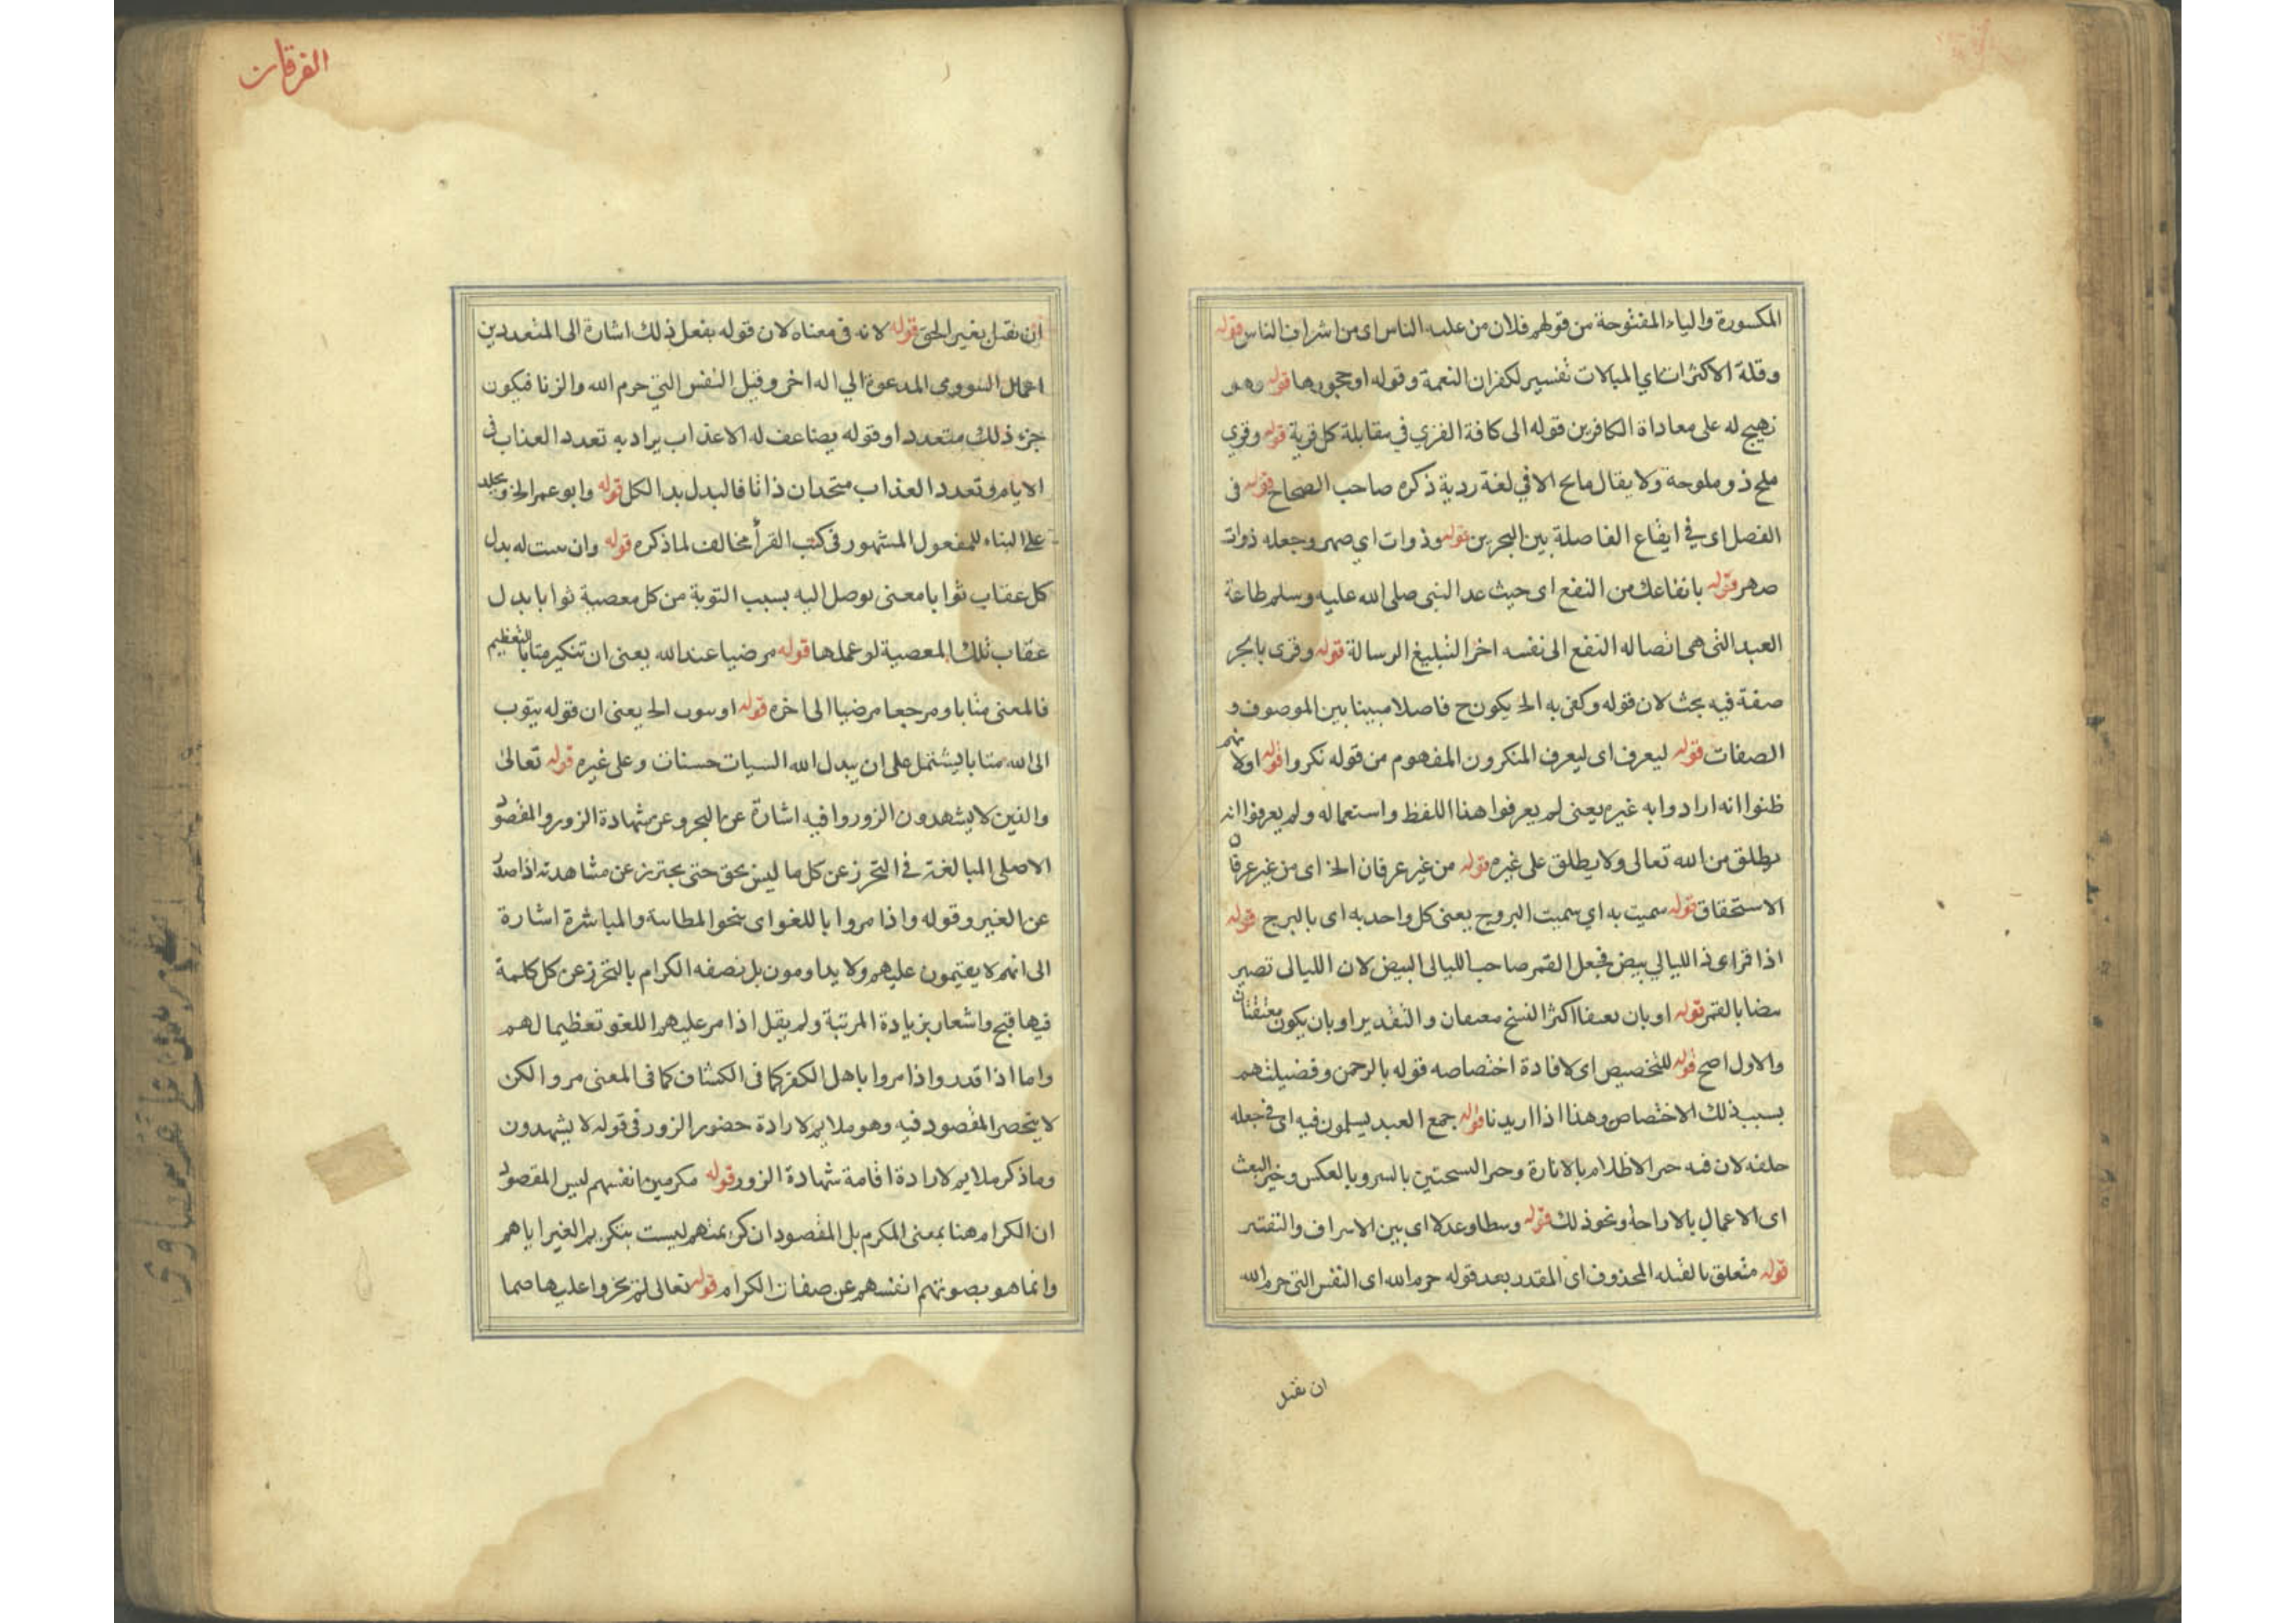 المكسورة والياء المفتوحة من قولهم فلان من علية الناس اى من اشراف الناس قوله
وقلة الاكتراث اي المبالات تفسير لكفران النعمة وقوله او جحورها قوله وهو
تهييج له على معاداة الكافرين قوله الى كافة القري في مقابلة كل قرية قوله وقري
ملح ذو ملوحة ولا يقال مالح الا في لغة ردية ذكره صاحب الصحاح قوله فى
الفصل اى في ايقاع الفاصلة بين البحرين قوله وذوات اي صهر وجعله ذوات
صهر قوله بانفاعك من النفع اى حيث عد النبى صلى الله عليه وسلم طاعة
العبد التى هى ايصاله النفع الى نفسه اخرا لتبليغ الرسالة قوله وقرى بالجر
صفة فيه بحث لان قوله وكفى به الخ يكون ح فاصلا مبينا بين الموصوف و
الصفات قوله ليعرف اى ليعرف المنكرون المفهوم من قوله نكروا قوله اولانهم
ظنوا انه ارادوا به غيره يعنى لم يعرفوا هذا اللفظ واستعماله ولم يعرفوا انه
يطلق من الله تعالى ولا يطلق على غيره قوله من غير عرفان الخ اى من غير عرفان
الاستحقاق قوله سميت به اي سميت البروج يعنى كل واحد به اى بالبرج قوله
اذا قرا اى ذا الليالي بيض فجعل القمر صاحب الليالى البيض لان الليالى تصير
بيضا بالقمر قوله او بان يعتقبا اكثر النسخ معتقبان والتقدير او بان يكون معتقبان
والاول اصح قوله للتخصيص اى لافادة اختصاصه قوله بالرحمن وفضيلتهم
بسبب ذلك الاختصاص وهذا اذا اريدنا قوله جمع العبد يسلمون فيه اى في جعله
خلفه لان فيه الاظلام بالانارة وبالعكس البعث
اى الاعمال بالاراحة ونحو ذلك قوله وسطا وعدلا اى بين الاسراف والتقتير
قوله متعلق بالقتله المحذوف اى المقدر بعد قوله حرم الله اى النفس التى حرم الله
ان تقتل
الفرقان
ان تقتل بغير الحق قوله لانه فى معناه لان قوله يفعل ذلك اشارة الى المتعددين
اعمال السوء وهى المدعوة الي اله اخر وقتل النفس التي حرم الله والزنا فيكون
جزء ذلك متعددا وقوله يضاعف له الاعذاب يراد به تعدد العذاب فى
الايام وتعدد العذاب متحدان ذاتا فالبدل بدا الكل قوله وابو عمر الخ ويخلد
على البناء للمفعول المشهور فى كتب القرأ مخالف لما ذكره قوله وان يثبت له بدل
كل عقاب ثوابا معنى يوصل اليه بسبب التوبة من كل معصية ثوابا بدل
عقاب تلك المعصية لو عملها قوله مرضيا عند الله يعنى ان تنكير متابا للتعظيم
فالمعنى متابا ومرجعا مرضيا الى اخره قوله او يتوب الخ يعنى ان قوله يتوب
الى الله متابا ليشتمل على ان يبدل الله السيات حسنات وعلى غيره قوله تعالى
والذين لا يشهدون الزور وا فيه اشارة عن التجرو عن شهادة الزور والمقصود
الاصلى المبالغة في التحرز عن كل ما ليس بحق حتى يحترز عن مشاهدته اذا صدر
عن الغير وقوله واذا مروا باللغو اى بنحو المطايبة والمباشرة اشارة
الى انهم لا يقيمون عليهم ولا يداومون بل نصفه الكرام بالتحرز عن كل كلمة
فيها قبح واشعار بزيادة المرتبة ولم يقل اذا مر عليهم اللغو تعظيما لهم
واما اذا قدر واذا مروا باهل الكفر كما فى الكشاف كما فى المعنى مر والكن
لا ينحصر المقصود فيه وهو ملايم لارادة حضور الزور فى قوله لا يشهدون
وما ذكر ملايم لارادة اقامة شهادة الزور قوله مكرمين انفسهم ليس المقصود
ان الكرام هنا بمعنى المكرم بل المقصود ان كريمتهم ليست بتكريم الغير اياهم
وانما هو بصونهم انفسهم عن صفات الكرام قوله تعالى لم يخروا عليها صما